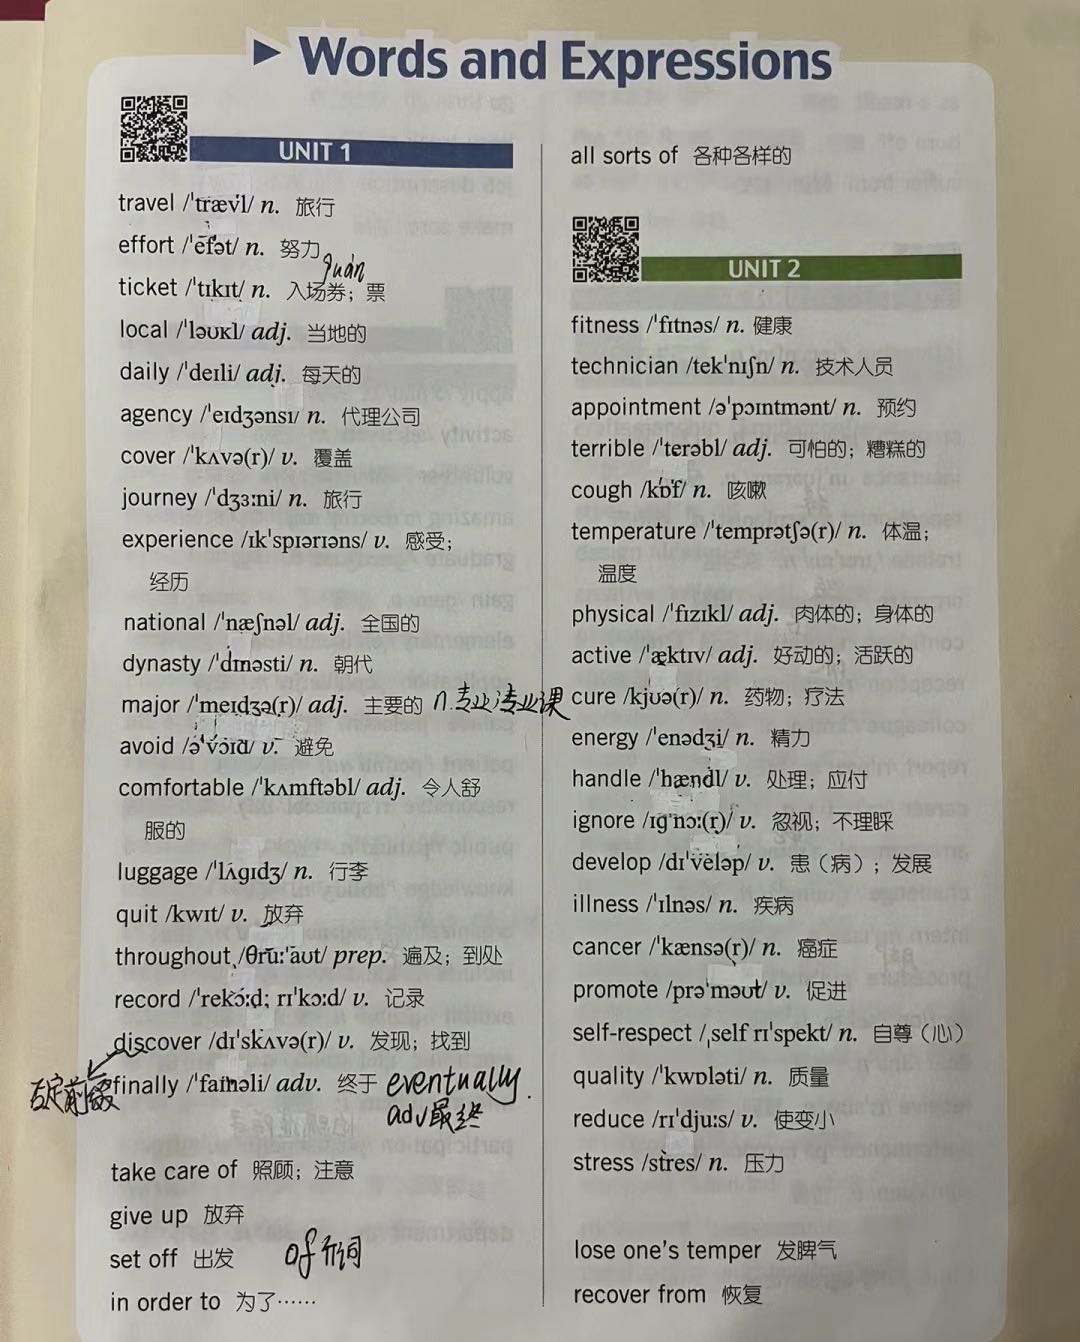 ▶ Words and Expressions
UNIT 1
travel /ˈtrævl/ n. 旅行
effort /ˈefət/ n. 努力
quán
ticket /ˈtɪkɪt/ n. 入场券；票
local /ˈləʊkl/ adj. 当地的
daily /ˈdeɪli/ adj. 每天的
agency /ˈeɪdʒənsɪ/ n. 代理公司
cover /ˈkʌvə(r)/ v. 覆盖
journey /ˈdʒɜːni/ n. 旅行
experience /ɪkˈspɪərɪəns/ v. 感受；
经历
national /ˈnæʃnəl/ adj. 全国的
dynasty /ˈdɪnəsti/ n. 朝代
major /ˈmeɪdʒə(r)/ adj. 主要的 n.专业;专业课
avoid /əˈvɔɪd/ v. 避免
comfortable /ˈkʌmftəbl/ adj. 令人舒
服的
luggage /ˈlʌɡɪdʒ/ n. 行李
quit /kwɪt/ v. 放弃
throughout /θruːˈaʊt/ prep. 遍及；到处
record /ˈrekɔːd; rɪˈkɔːd/ v. 记录
discover /dɪˈskʌvə(r)/ v. 发现；找到
否定前缀
finally /ˈfaɪnəli/ adv. 终于 eventually.
adv最终
take care of 照顾；注意
give up 放弃
set off 出发 of 介词
in order to 为了……
all sorts of 各种各样的
UNIT 2
fitness /ˈfɪtnəs/ n. 健康
technician /tekˈnɪʃn/ n. 技术人员
appointment /əˈpɔɪntmənt/ n. 预约
terrible /ˈterəbl/ adj. 可怕的；糟糕的
cough /kɒf/ n. 咳嗽
temperature /ˈtemprətʃə(r)/ n. 体温；
温度
physical /ˈfɪzɪkl/ adj. 肉体的；身体的
active /ˈæktɪv/ adj. 好动的；活跃的
cure /kjʊə(r)/ n. 药物；疗法
energy /ˈenədʒi/ n. 精力
handle /ˈhændl/ v. 处理；应付
ignore /ɪɡˈnɔː(r)/ v. 忽视；不理睬
develop /dɪˈveləp/ v. 患（病）；发展
illness /ˈɪlnəs/ n. 疾病
cancer /ˈkænsə(r)/ n. 癌症
promote /prəˈməʊt/ v. 促进
self-respect /ˌself rɪˈspekt/ n. 自尊（心）
quality /ˈkwɒləti/ n. 质量
reduce /rɪˈdjuːs/ v. 使变小
stress /stres/ n. 压力
lose one's temper 发脾气
recover from 恢复